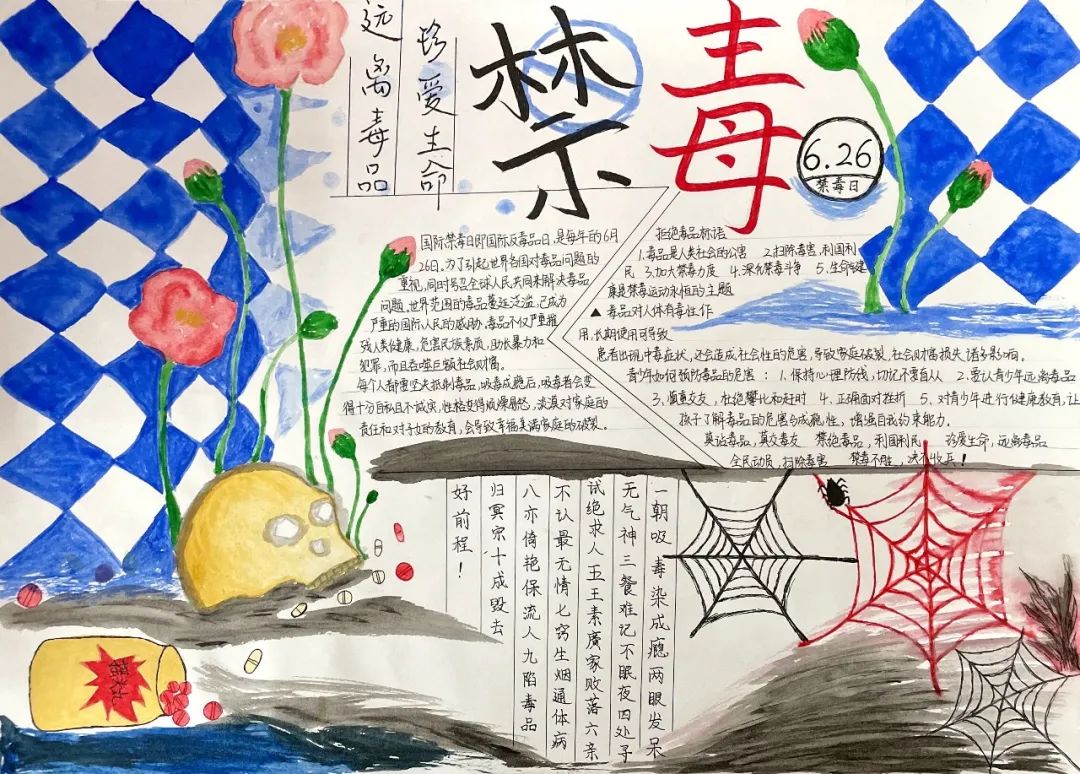 禁毒
珍爱生命
远离毒品
6.26
禁毒日
国际禁毒日即国际反毒品日,是每年的6月
26日。为了引起世界各国对毒品问题的
重视,同时号召全球人民共同来解决毒品
问题。世界范围的毒品蔓延泛滥,已成为
严重的国际人民的威胁。毒品不仅严重摧
残人类健康,危害民族素质,助长暴力和
犯罪,而且吞噬巨额社会财富。
每个人都要坚决抵制毒品,吸毒成瘾后,吸毒者会变
得十分自私且不诚实,性格变得成躁易怒,淡漠对家庭的
责任和对子女的教育,会导致幸福美满家庭的破裂。
拒绝毒品标语
1.毒品是人类社会的公害 2.扫除毒害,利国利
民 3.加大禁毒力度 4.深化禁毒斗争 5.生命健
康是禁毒运动永恒的主题
▲ 毒品对人体有毒性作
用,长期使用可导致
患者出现中毒症状,还会造成社会性的危害,导致家庭破裂,社会财富损失诸多影响。
青少年如何预防毒品的危害: 1.保持心理防线,切忌不要自从 2.要认青少年远离毒品
3.慎重交友,杜绝攀比和赶时 4.正确面对挫折 5.对青少年进行健康教育,让
孩子了解毒品的危害与成瘾性,增强自我约束能力。
莫沾毒品,莫交毒友 禁绝毒品,利国利民 珍爱生命,远离毒品
全民动员,扫除毒害 禁毒不胜,决不收兵!
一朝吸毒染成瘾两眼发呆
无气神三餐难记不眠夜四处予
试绝求人五王素廣家败落六亲
不认最无情七窍生烟通体病
八亦倚艳保流人九陷毒品
归冥宗十成毁去
好前程!